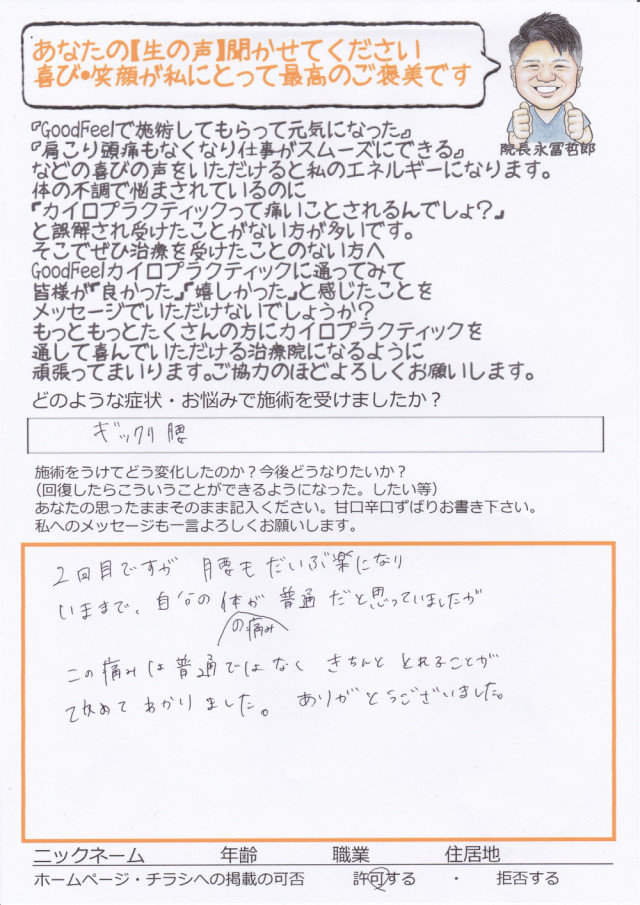 あなたの【生の声】聞かせてください
喜び・笑顔が私にとって最高のご褒美です
院長永冨哲郎
『GoodFeelで施術してもらって元気になった』
『肩こり頭痛もなくなり仕事がスムーズにできる』
などの喜びの声をいただけると私のエネルギーになります。
体の不調で悩まされているのに
『カイロプラクティックって痛いことされるんでしょ？』
と誤解され受けたことがない方が多いです。
そこでぜひ治療を受けたことのない方へ
GoodFeelカイロプラクティックに通ってみて
皆様が『良かった』『嬉しかった』と感じたことを
メッセージでいただけないでしょうか？
もっともっとたくさんの方にカイロプラクティックを
通して喜んでいただける治療院になるように
頑張ってまいります。ご協力のほどよろしくお願いします。
どのような症状・お悩みで施術を受けましたか？
ギックリ腰
施術をうけてどう変化したのか？今後どうなりたいか？
（回復したらこういうことができるようになった。したい等）
あなたの思ったままそのまま記入ください。甘口辛口ずばりお書き下さい。
私へのメッセージも一言よろしくお願いします。
2回目ですが 腰もだいぶ楽になり
いままで、自分の体が 普通だと思っていましたが
の痛み
この痛みは普通ではなく きちんと とれることが
改めて わかりました。 ありがとうございました。
ニックネーム 年齢 職業 住居地
ホームページ・チラシへの掲載の可否 許可する ・ 拒否する